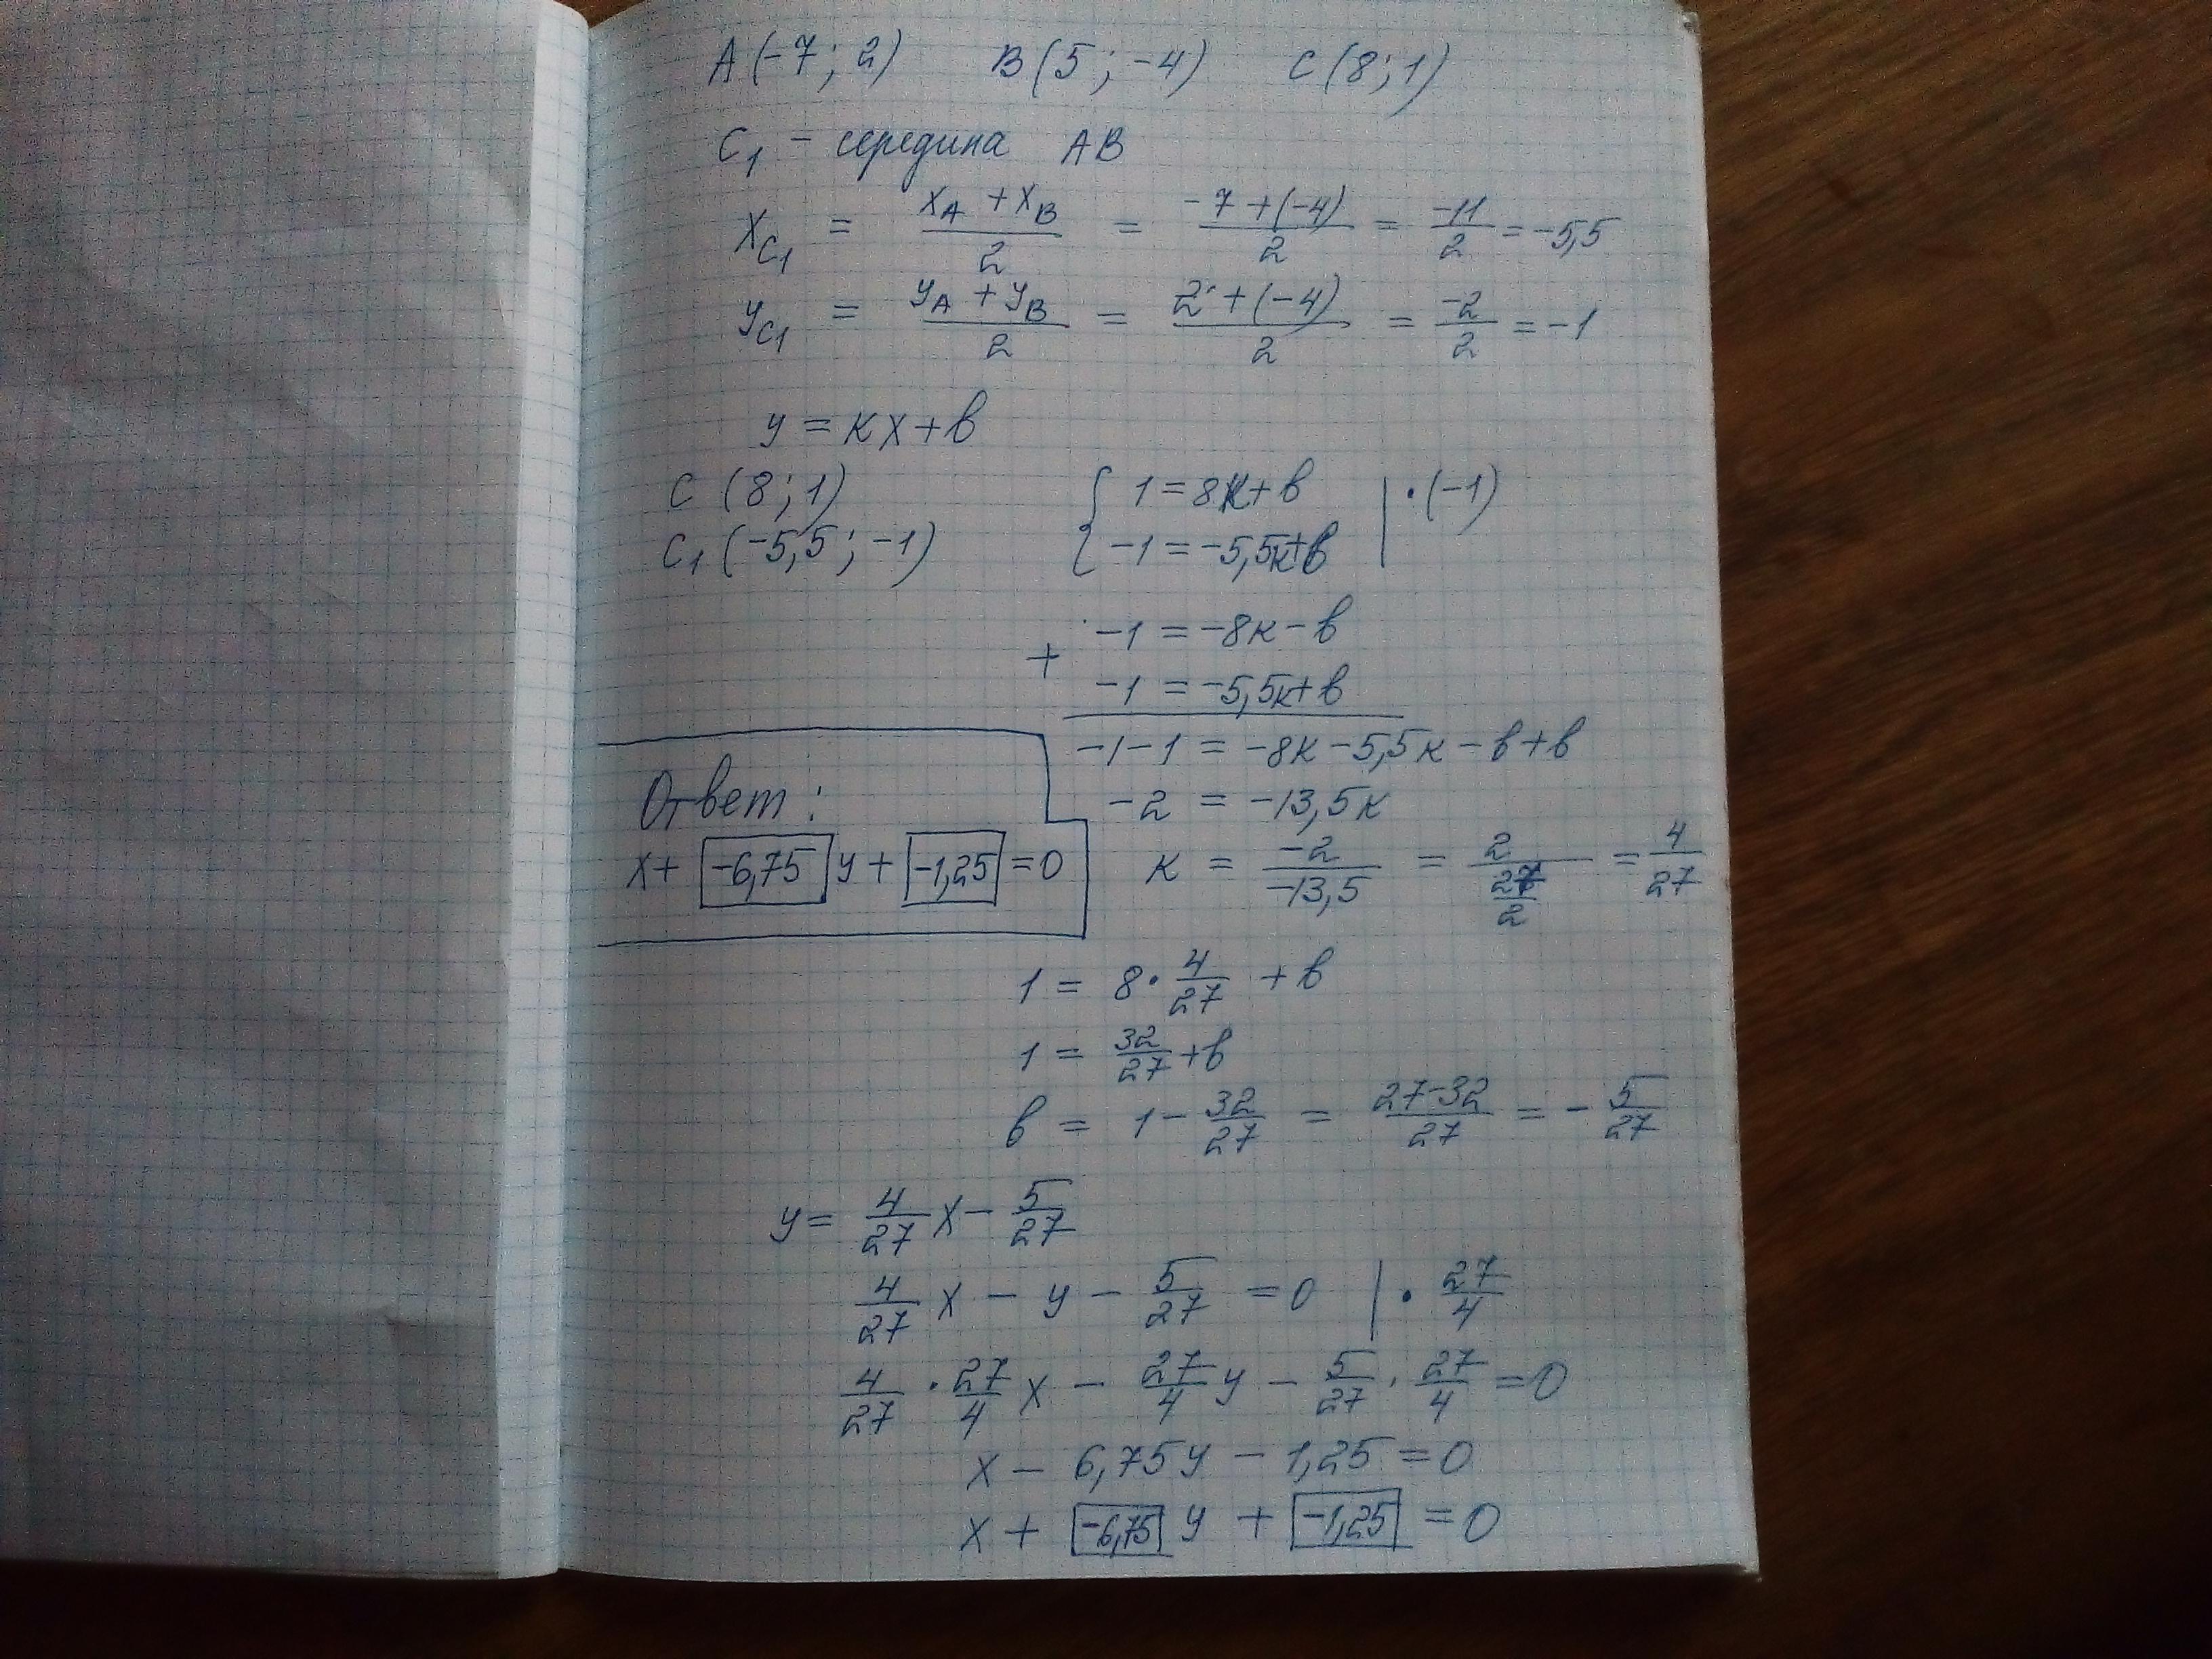 A(-7; 2) B(5; -4) C(8; 1)
C₁ - середина AB
x_C₁ = (x_A + x_B)/2 = (-7+(-4))/2 = -11/2 = -5,5
y_C₁ = (y_A + y_B)/2 = (2+(-4))/2 = -2/2 = -1
y = кx+в
C (8; 1) { 1 = 8к+в | ·(-1)
C₁ (-5,5; -1) -1 = -5,5к+в
+ -1 = -8к-в
-1 = -5,5к+в
-1-1 = -8к-5,5к-в+в
-2 = -13,5к
к = -2/-13,5 = 2/(27/2) = 4/27
Ответ:
x+ -6,75 y + -1,25 = 0
1 = 8·4/27 + в
1 = 32/27+в
в = 1 - 32/27 = (27-32)/27 = - 5/27
y = 4/27 x - 5/27
4/27 x - y - 5/27 = 0 | · 27/4
4/27 · 27/4 x - 27/4 y - 5/27 · 27/4 = 0
x - 6,75y - 1,25 = 0
x + -6,75 y + -1,25 = 0